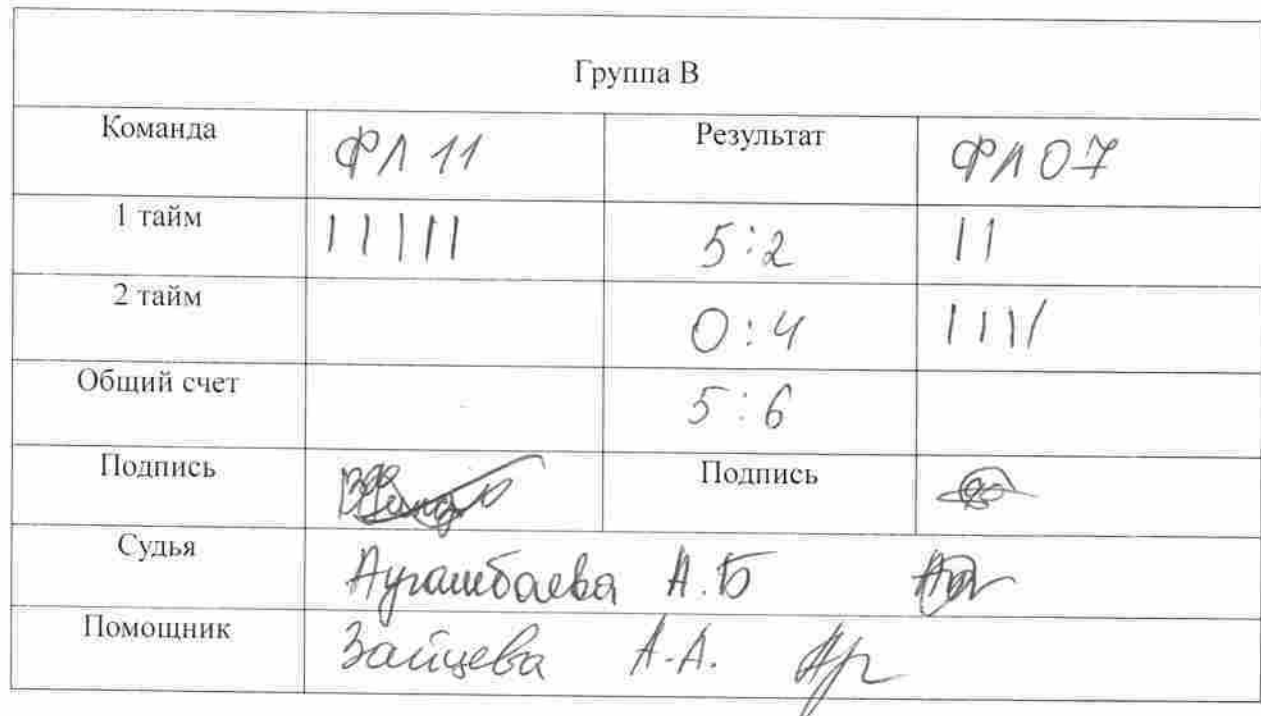 Группа В
Команда ФЛ 11 Результат ФЛ 07
1 тайм | | | | | 5:2 | |
2 тайм 0:4 | | | |
Общий счет 5:6
Подпись Подпись
Судья А.Б
Помощник Зайцева А.А.